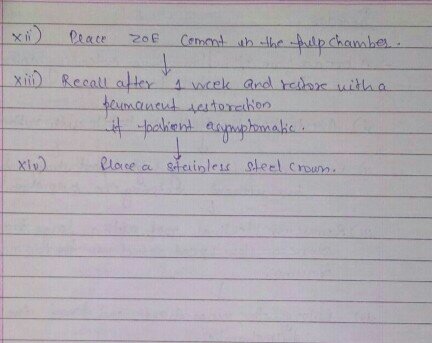 xii) Place ZOE Cement in the pulp chamber.
↓
xiii) Recall after 1 week and restore with a
permanent restoration
if patient asymptomatic.
↓
xiv) Place a stainless steel crown.